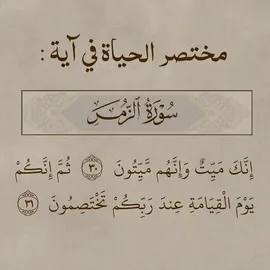 مختصر الحياة في آية :
سُورَةُ الزُّمَر
إِنَّكَ مَيِّتٌ وَإِنَّهُم مَّيِّتُونَ ٣٠ ثُمَّ إِنَّكُمْ
يَوْمَ الْقِيَامَةِ عِندَ رَبِّكُمْ تَخْتَصِمُونَ ٣١